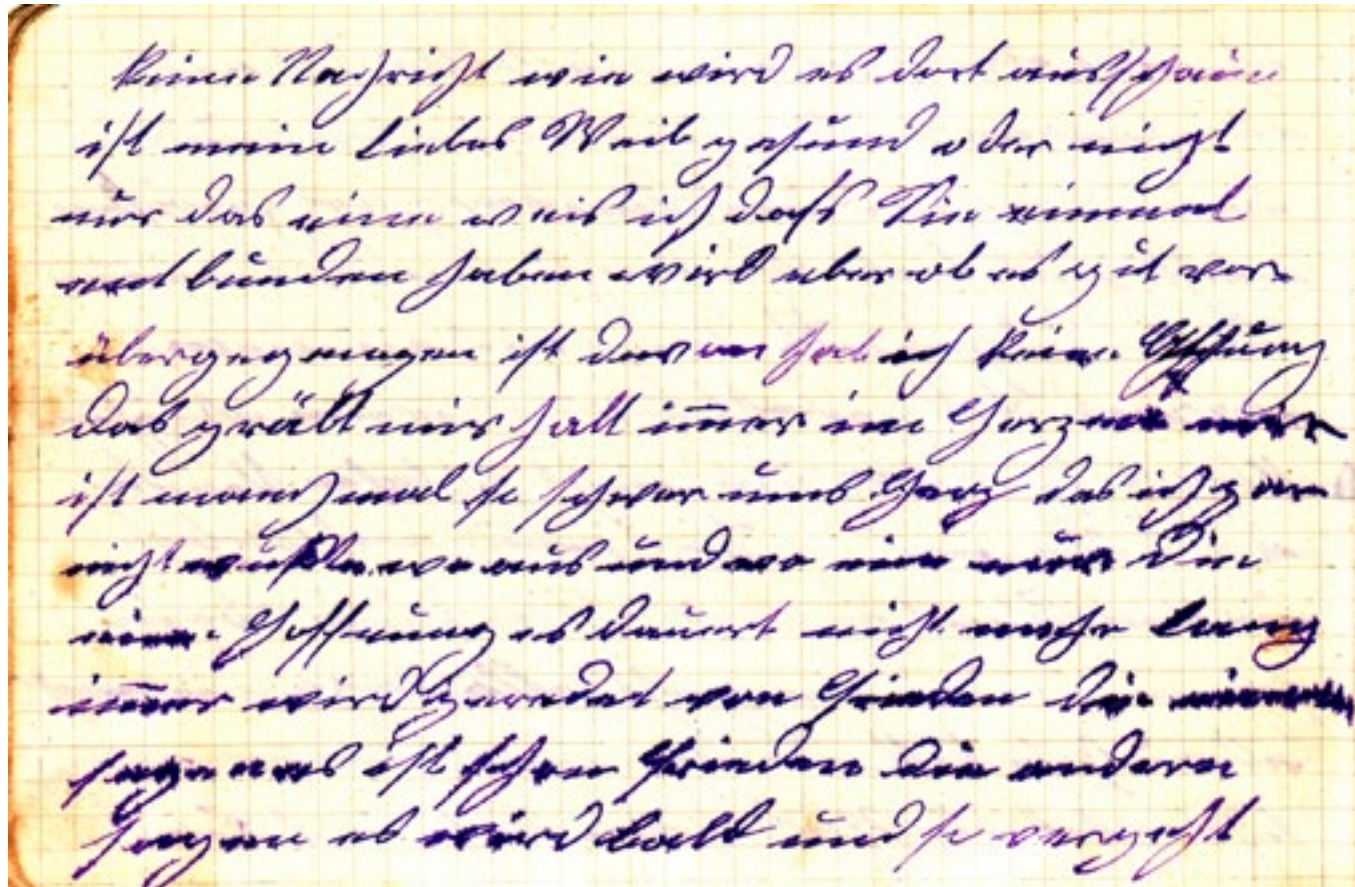 keine Nachricht wie wird es dort ausschauen
ist mein liebes Weib gesund oder nicht
nur das eine weis ich dass Sie einmal
entbunden haben wird aber ob es gut vor-
übergegangen ist davon hab ich keine
das quält mir halt im̄er im Herzen mir
ist manchmal so schwer ums Herz das ich gar
nicht wußte wo aus und wo ein nur die
eine Hoffnung es dauert nicht mehr lang
im̄er wird geredet von Frieden die einen
sagen es ist schon Frieden die andern
sagen es wird bald und so vergeht